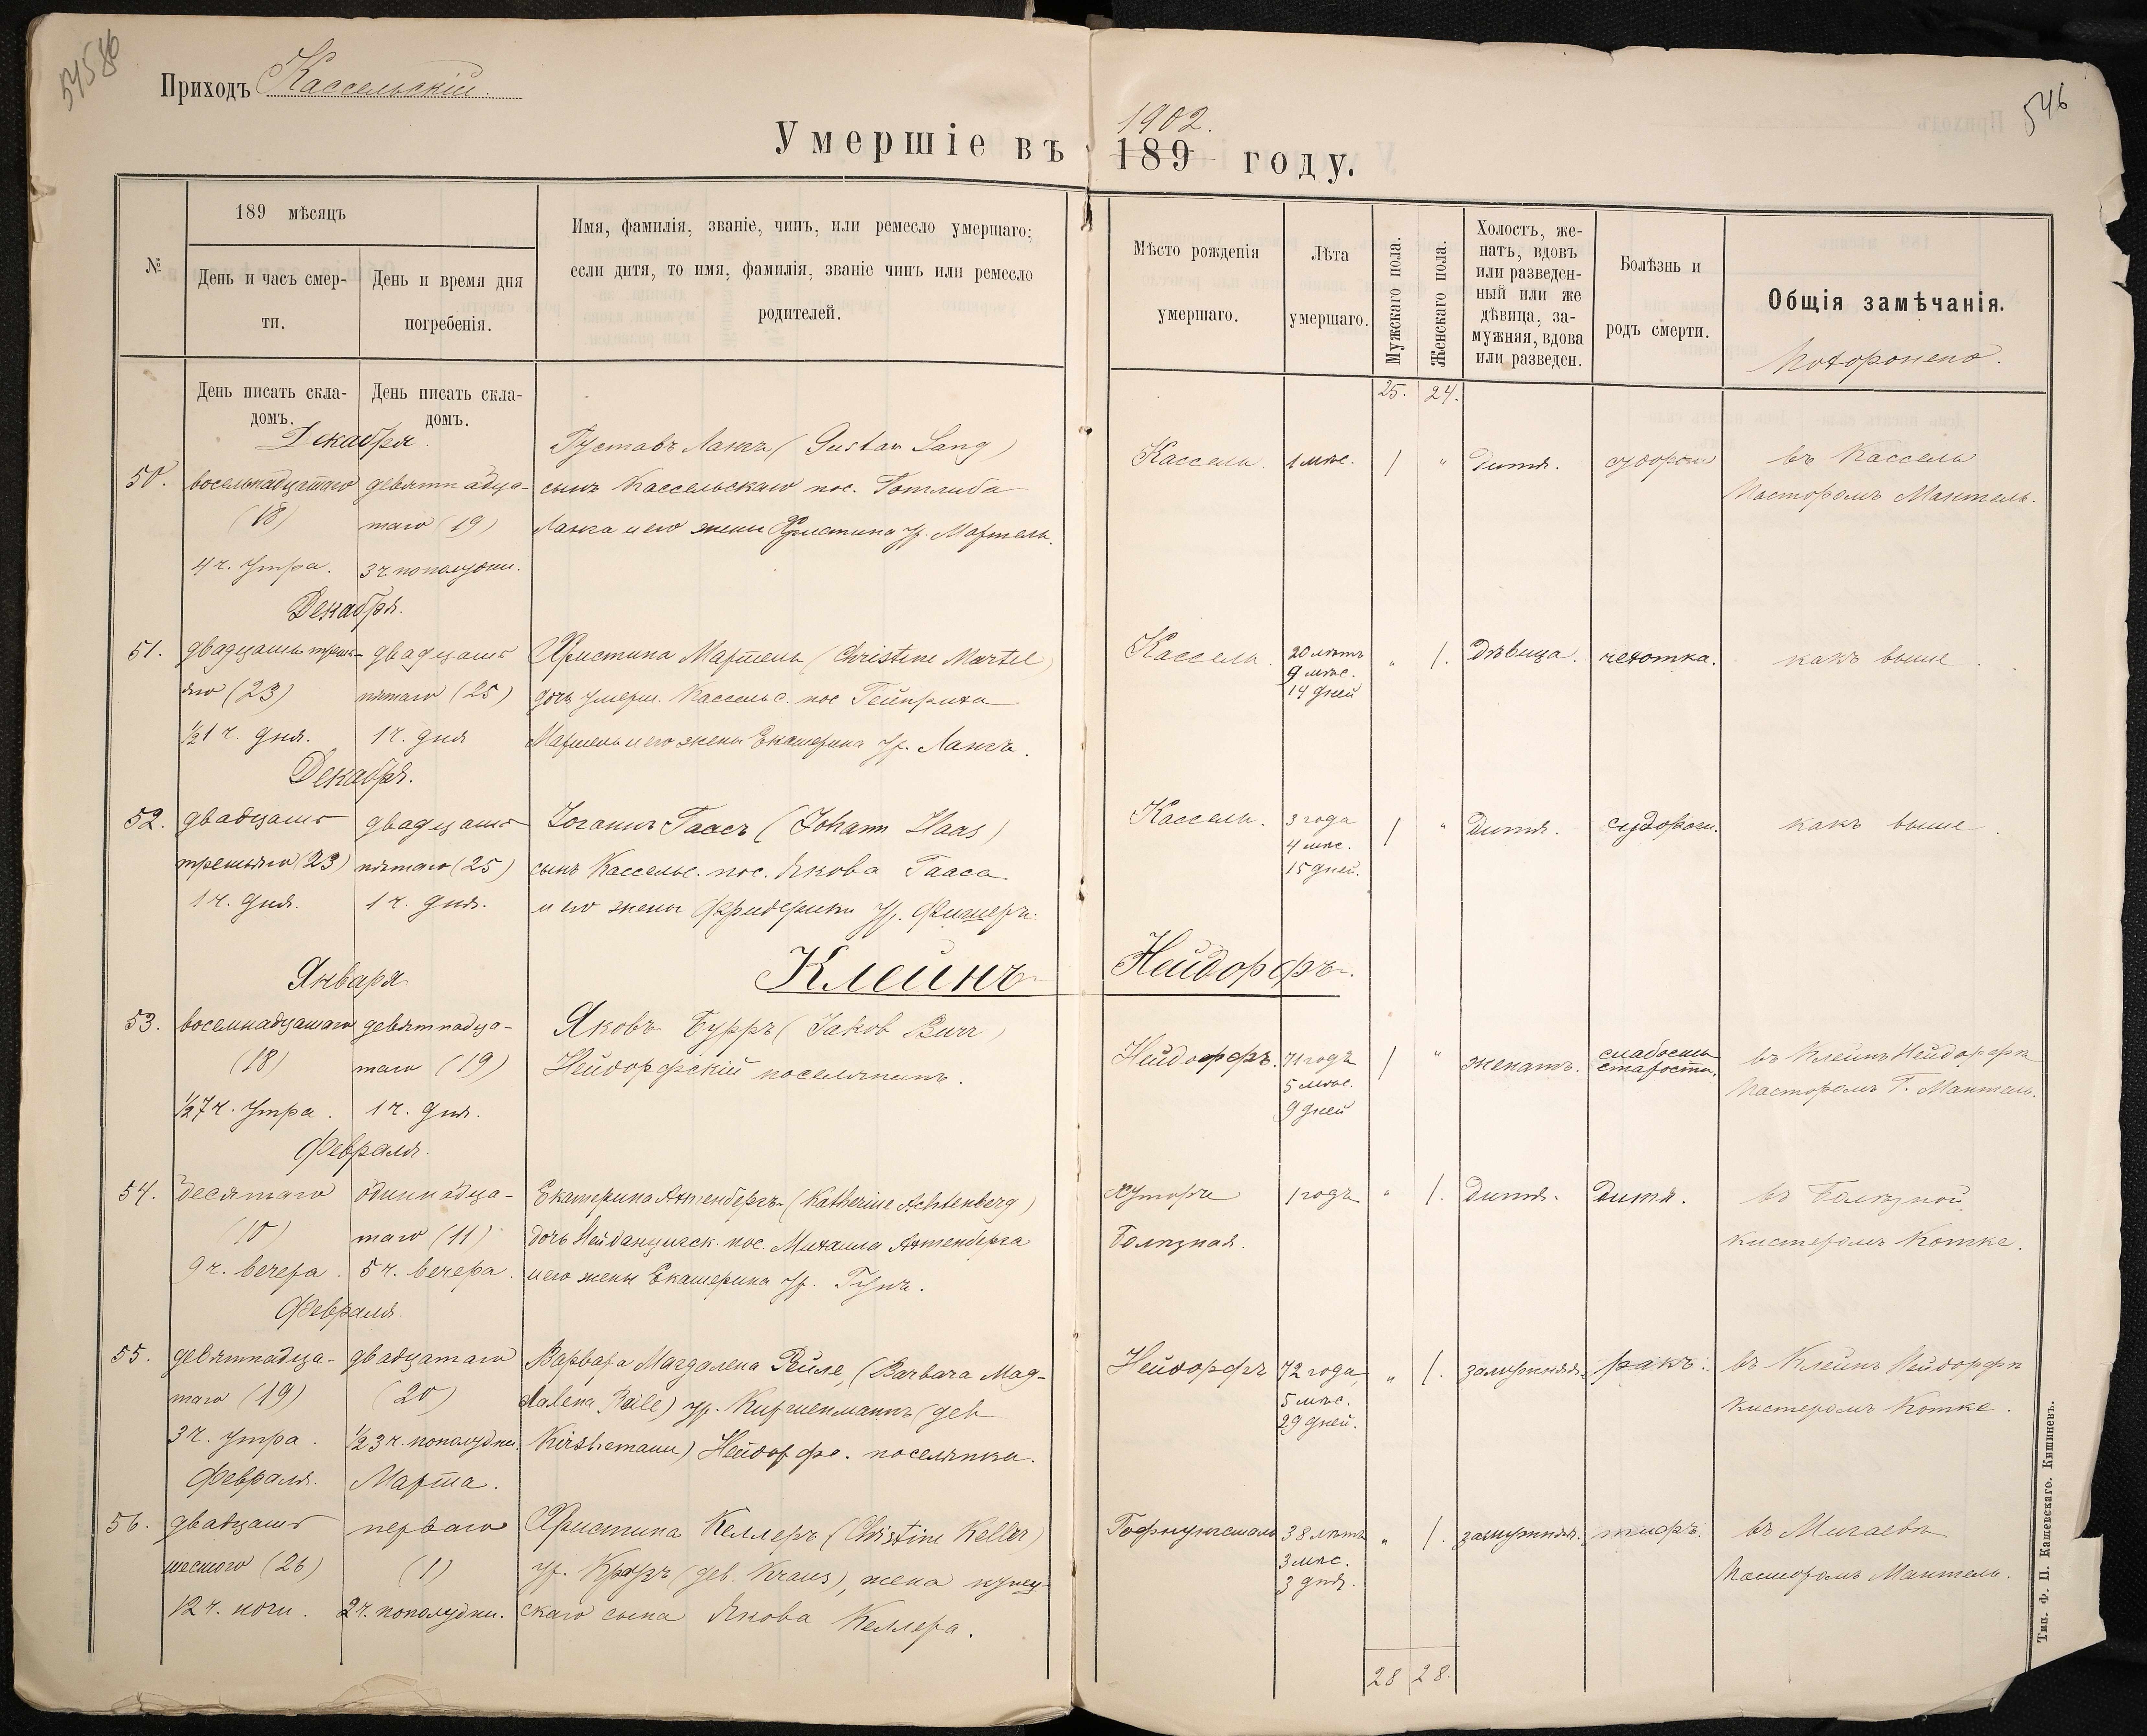 54580
546
Приходъ Кассельскій.
1902.
Умершіе въ 189 году.
№
189 мѣсяцъ
День и часъ смер-
ти.
День и время дня
погребенія.
Имя, фамилія, званіе, чинъ, или ремесло умершаго;
если дитя, то имя, фамилія, званіе чинъ или ремесло
родителей.
Мѣсто рожденія
умершаго.
Лѣта
умершаго.
Мужскаго пола.
Женскаго пола.
Холостъ, же-
натъ, вдовъ
или разведен-
ный или же
дѣвица, за-
мужняя, вдова
или разведен.
Болѣзнь и
родъ смерти.
Общія замѣчанія.
Похоронено.
День писать скла-
домъ.
День писать скла-
домъ.
25. 24.
Декабря.
50. восемнадцатаго
(18)
4 ч. утра.
девятнадца-
таго (19)
3 ч. пополудни.
Густавъ Лангъ (Gustav Lang)
сынъ Кассельскаго пос. Готлиба
Ланга и его жены Христина ур. Мартель.
Кассель. 1 мѣс. 1 " Дитя. судороги
въ Кассель
Пасторомъ Мантель.
Декабря.
51. двадцать треть-
яго (23)
½1 ч. дня.
двадцать
пятаго (25)
1 ч. дня
Христина Мартель (Christine Martel)
дочь умерш. Кассельс. пос Гейнриха
Мартель и его жены Екатерина ур. Лангъ.
Кассель. 20 лѣтъ
9 мѣс.
14 дней
" 1. Дѣвица. чахотка. какъ выше.
Декабря.
52. двадцать
третьяго (23)
1 ч. дня.
двадцать
пятаго (25)
1 ч. дня.
Іоганъ Гаасъ (Johann Haas)
сынъ Кассельс. пос. Якова Гааса
и его жены Фридерики ур. Фишеръ.
Кассель. 3 года
4 мѣс.
15 дней.
1 " Дитя. судороги. какъ выше.
Клейнъ Нейдорфъ.
Января
53. восемнадцатаго
(18)
½7 ч. утра.
девятнадца-
таго (19)
1 ч. дня.
Яковъ Бурръ (Jakob Burr)
Нейдорфскій поселянинъ.
Нейдорфъ. 71 годъ
5 мѣс.
9 дней
1 " женатъ. слабость
старости.
въ Клейнъ Нейдорфѣ
Пасторомъ Г. Мантель.
Февраля.
54. десятаго
(10)
9 ч. вечера.
одиннадца-
таго (11)
5 ч. вечера.
Екатерина Ахтенбергъ (Katherine Achtenberg)
дочь Нейданцигск. пос. Михаила Ахтенберга
и его жены Екатерина ур.
Хуторъ
1 годъ " 1. дитя. Дитя.
въ
Кистеромъ Котке.
Февраля.
55. девятнадца-
таго (19)
3 ч. утра.
двадцатаго
(20)
½3 ч. пополудни.
Варвара Магдалена Рейле, (Barbara Mag-
dalena Reile) ур. Киршенманнъ (geb
Kirshemann) Нейдорфс. поселянка.
Нейдорфъ 72 года,
5 мѣс.
29 дней.
" 1. замужняя. ракъ.
въ Клейнъ Нейдорфѣ
Кистеромъ Котке.
Февраля. Марта.
56. двадцать
шестого (26)
12 ч. ночи.
перваго
(1)
2 ч. пополудни.
Христина Келлеръ (Christine Keller)
ур. Краузъ (geb. Kraus), жена купец-
скаго сына Якова Келлера.
38 лѣтъ
3 мѣс.
3 дня.
" 1. замужняя. тифъ.
въ Мигаевѣ
Пасторомъ Мантель.
28 28.
Тип. Ф. П. Кашевскаго. Кишиневъ.